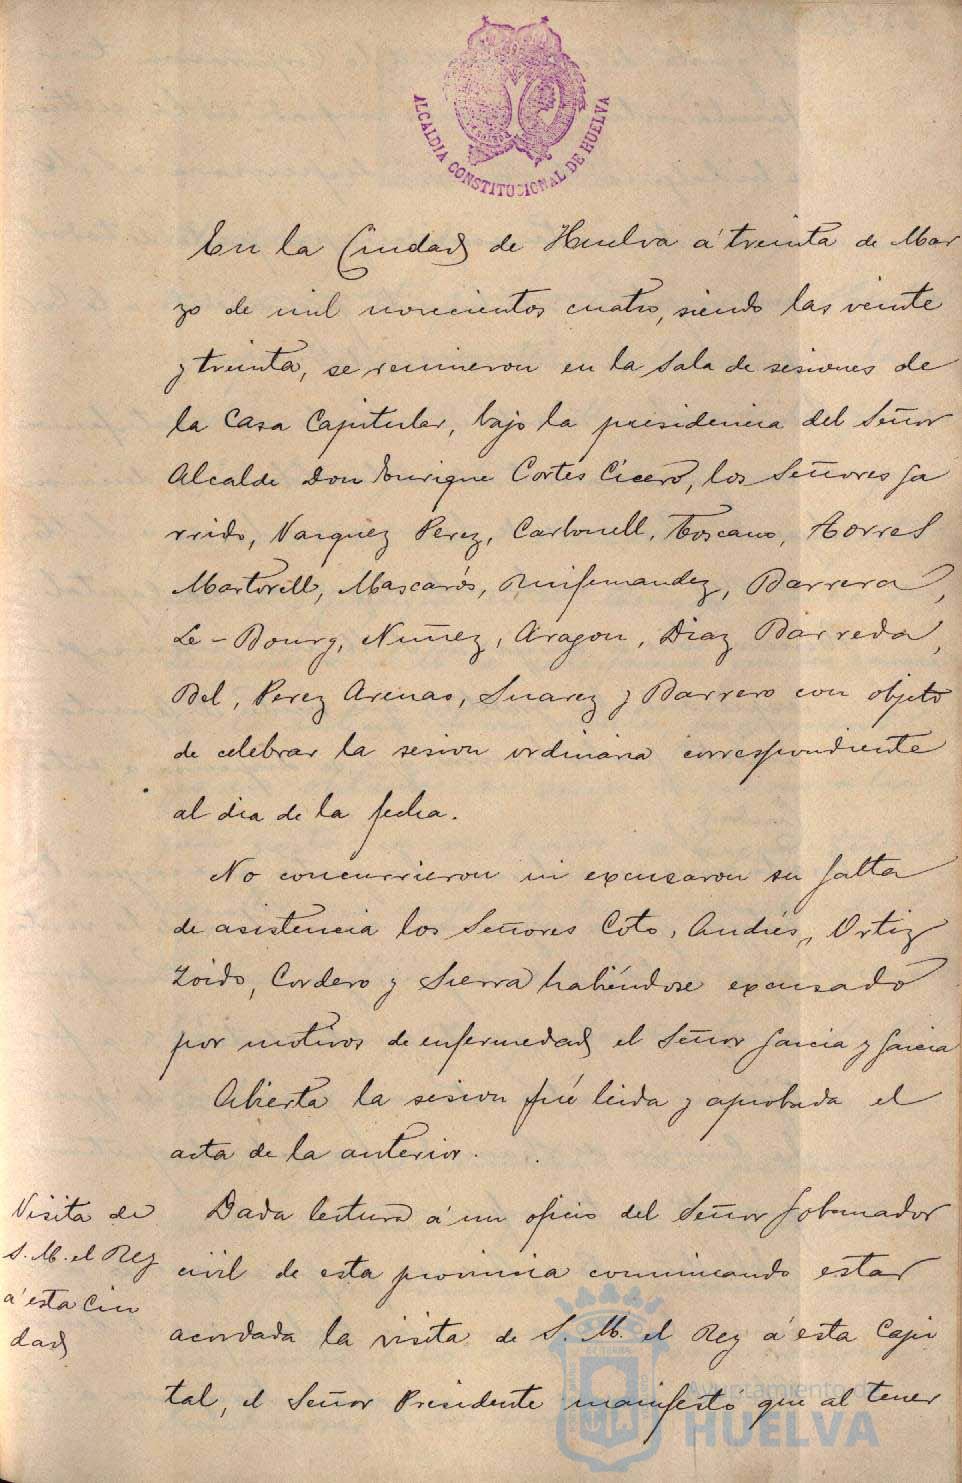 ALCALDIA CONSTITUCIONAL DE HUELVA
En la Ciudad de Huelva á treinta de Mar
zo de mil novecientos cuatro, siendo las veinte
y treinta, se reunieron en la Sala de sesiones de
la Casa Capitular, bajo la presidencia del Señor
Alcalde Don Enrique Cortés Cícero, los Señores Ga
rrido, Vazquez Perez, Carbonell, Toscano, Torres
Martorell, Mascarós, Ruifernandez, Barrera,
Le-Bourg, Nuñez, Aragon, Diaz Barreda,
Bel, Perez Arenas, Suarez y Barrero con objeto
de celebrar la sesion ordinaria correspondiente
al dia de la fecha.
No concurrieron ni excusaron su falta
de asistencia los Señores Coto, Andrés, Ortiz
Zoido, Cordero y Sierra habiéndose excusado
por motivos de enfermedad el Señor Garcia y Garcia
Abierta la sesion fué leida y aprobada el
acta de la anterior.
Visita de
S. M. el Rey
á esta Ciu
dad
Dada lectura á un oficio del Señor Gobernador
civil de esta provincia comunicando estar
acordada la visita de S. M. el Rey á esta Capi
tal, el Señor Presidente manifestó que al tener
Ayuntamiento de
HUELVA